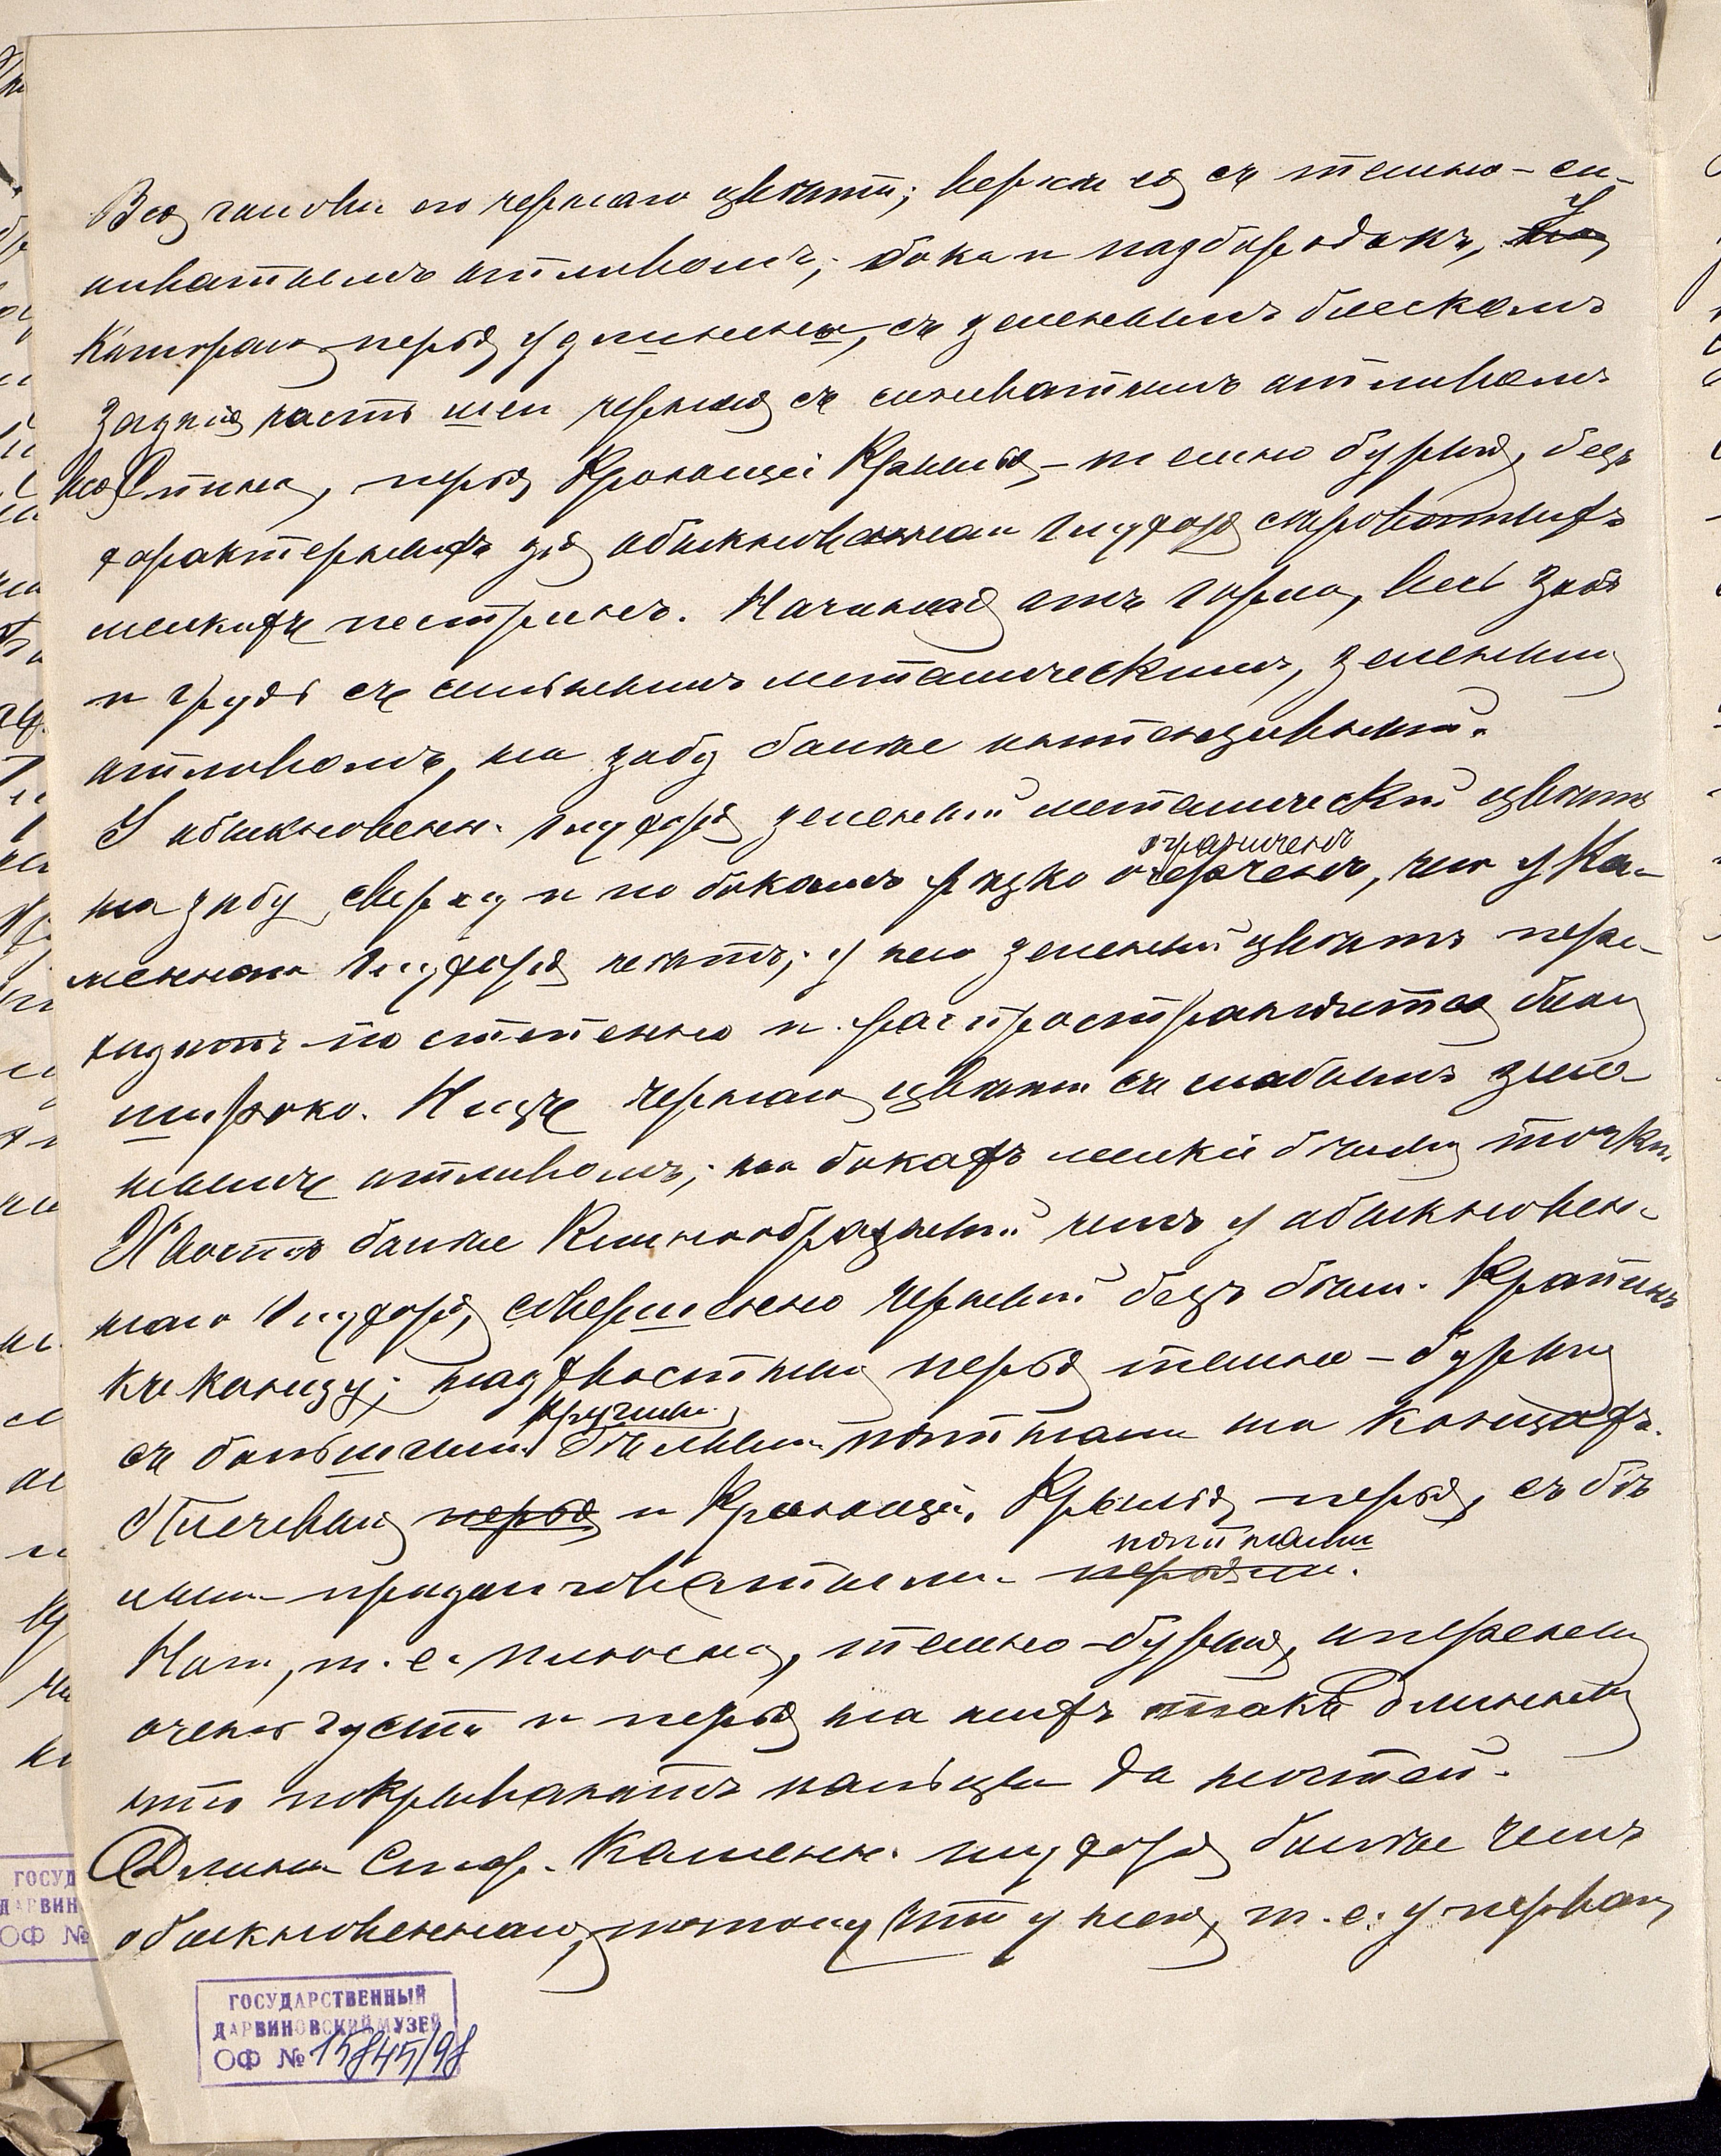 Вся голова его чернаго цвѣта; верхъ ея съ темно-си-
неватымъ отливомъ; бока и подбородокъ, у
котораго перья удлинены, съ зеленымъ блескомъ
Задняя часть шеи черная съ синеватымъ отливомъ
Вся спина, перья кроющія крылья - темно бурыя, безъ
характерныхъ для обыкновеннаго глухаря сѣроватыхъ
мелкихъ пестринъ. Начиная отъ горла, весь зобъ
и грудь съ сильнымъ металическимъ, зеленымъ
отливомъ, на зобу болѣе интенсивнымъ.
У обыкновенн. глухаря зеленый металический цвѣтъ
на зобу, сверху и по бокамъ рѣзко ограниченъ
очерченъ, чего у ка-
меннаго глухаря нетъ; у него зеленый цвѣтъ пере-
ходитъ постепенно и распространяется болѣе
широко. Низъ чернаго цвѣта съ слабымъ зеле-
нымъ отливомъ; на бокахъ мелкія бѣлыя точки.
Хвостъ болѣе клинообразный чемъ у обыкновен-
наго глухаря, совершенно черный безъ бѣлы. крапинъ
къ концу; надхвостныя перья темно-бурыя
съ большими бѣлыми пятнами на концахъ.
Плечевыя перья и кроющія крылья перья, съ бѣ
лыми продолговатыми перьями.
пятнами
Ноги, т.е. плюсна, темно-бурыя, оперены
очень густо и перья на нихъ такъ длинны
что покрываютъ пальцы до ногтей.
Длина стар. каменн. глухаря болѣе чемъ
обыкновеннаго, потому что у него, т.е. у перваго
ГОСУДАРСТВЕННЫЙ
ДАРВИНОВСКИЙ МУЗЕЙ
ОФ № 15845/98